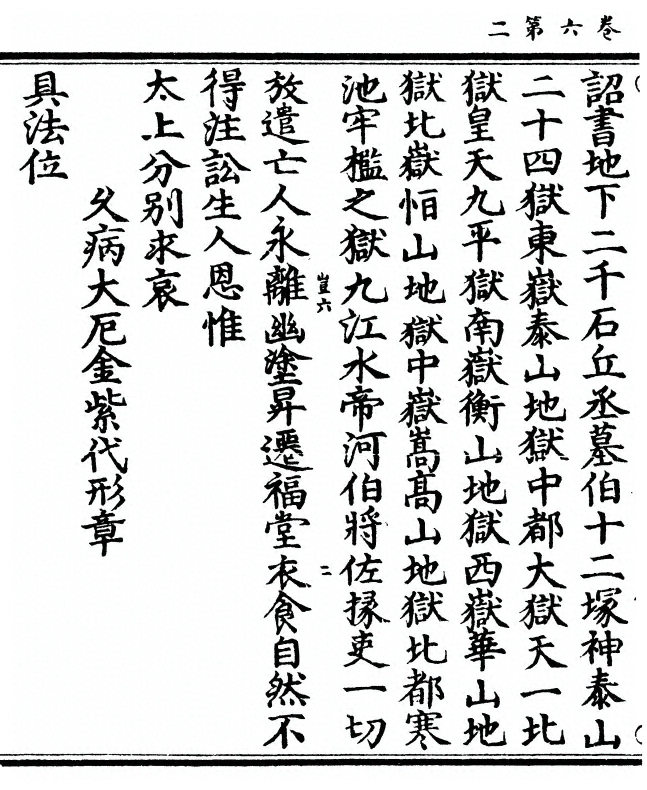 卷六第二
詔書地下二千石丘丞墓伯十二塚神泰山
二十四獄東嶽泰山地獄中都大獄天一北
獄皇天九平獄南嶽衡山地獄西嶽華山地
獄北嶽恒山地獄中嶽嵩高山地獄北都寒
池牢檻之獄九江水帝河伯將佐掾吏一切
放遣亡人永離幽塗昇遷福堂衣食自然不
豈六
二
得注訟生人恩惟
太上分别求哀
久病大厄金紫代形章
具法位